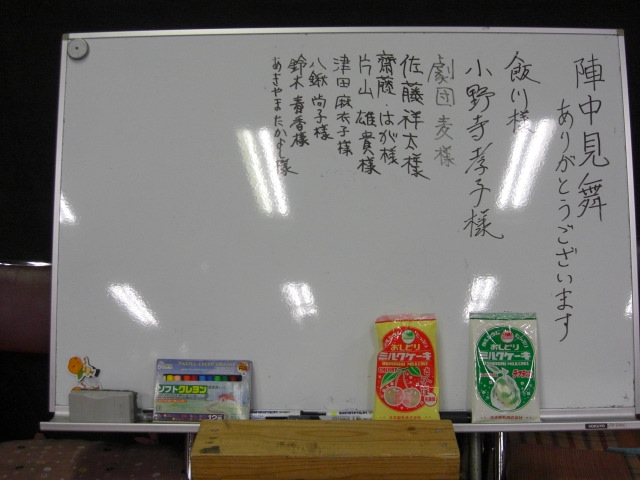 陣中見舞
ありがとうございます
飯川様
小野寺孝子様
劇団麦様
佐藤祥太様
齋藤・はが様
片山雄貴様
津田麻衣子様
八鍬尚子様
鈴木書香様
あきやまたかよ様
おしどり
ミルクケーキ
おしどり
ミルクケーキ
ソフトクレヨン
12